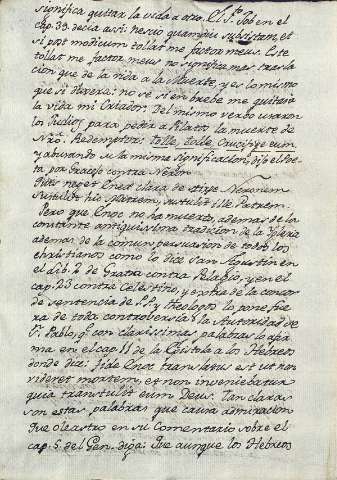 significa quitar la vida a otro. El Sto. Job en el
Cap. 32. decia assi: nescio quamdiu subsistam, et
si post modicum tollat me factor meus. Este
tollat me factor meus no significa mas trasla
cion que de la vida a la Muerte, y es lo mismo
que si dixera: no se si en brebe me quitara
la vida mi Criador. Del mismo verbo usaron
los Judios para pedir a Pilatto la muerte de
Nro. Redemptor: tolle, tolle, Crucifige eum
y abusando de la misma significacion, dijo el Poe
ta por gracejo contra Neron
neget Eneæ clara de stirpe Neronem
Sustulit hic Matrem, sustulit ille Patrem.
Pero que Enoc no ha muerto, ademas de la
constante antiquissima tradicion de la Iglesia
ademas de la comun persuasion de todos los
christianos como lo dice San Agustin en
el lib. 2 de Gratia contra Pelagio, y en el
cap. 23 contra Celestino, y extra de la concor
de sentencia de SS. y theologos lo pone fue
ra de toda controbersia la Autoridad de
S. Pablo, q. con clarissimas palabras lo afir
ma en el cap. 11 de la Epistola a los Hebreos
donde dice: fide Enoc translatus est ut non
videret mortem, et non inveniebatur
quia transtulit eum Deus. Tan claras
son estas palabras que causa admiracion
que oleastro en su Comentario sobre el
cap. 5. del Gen. diga: que aunque los Hebreos